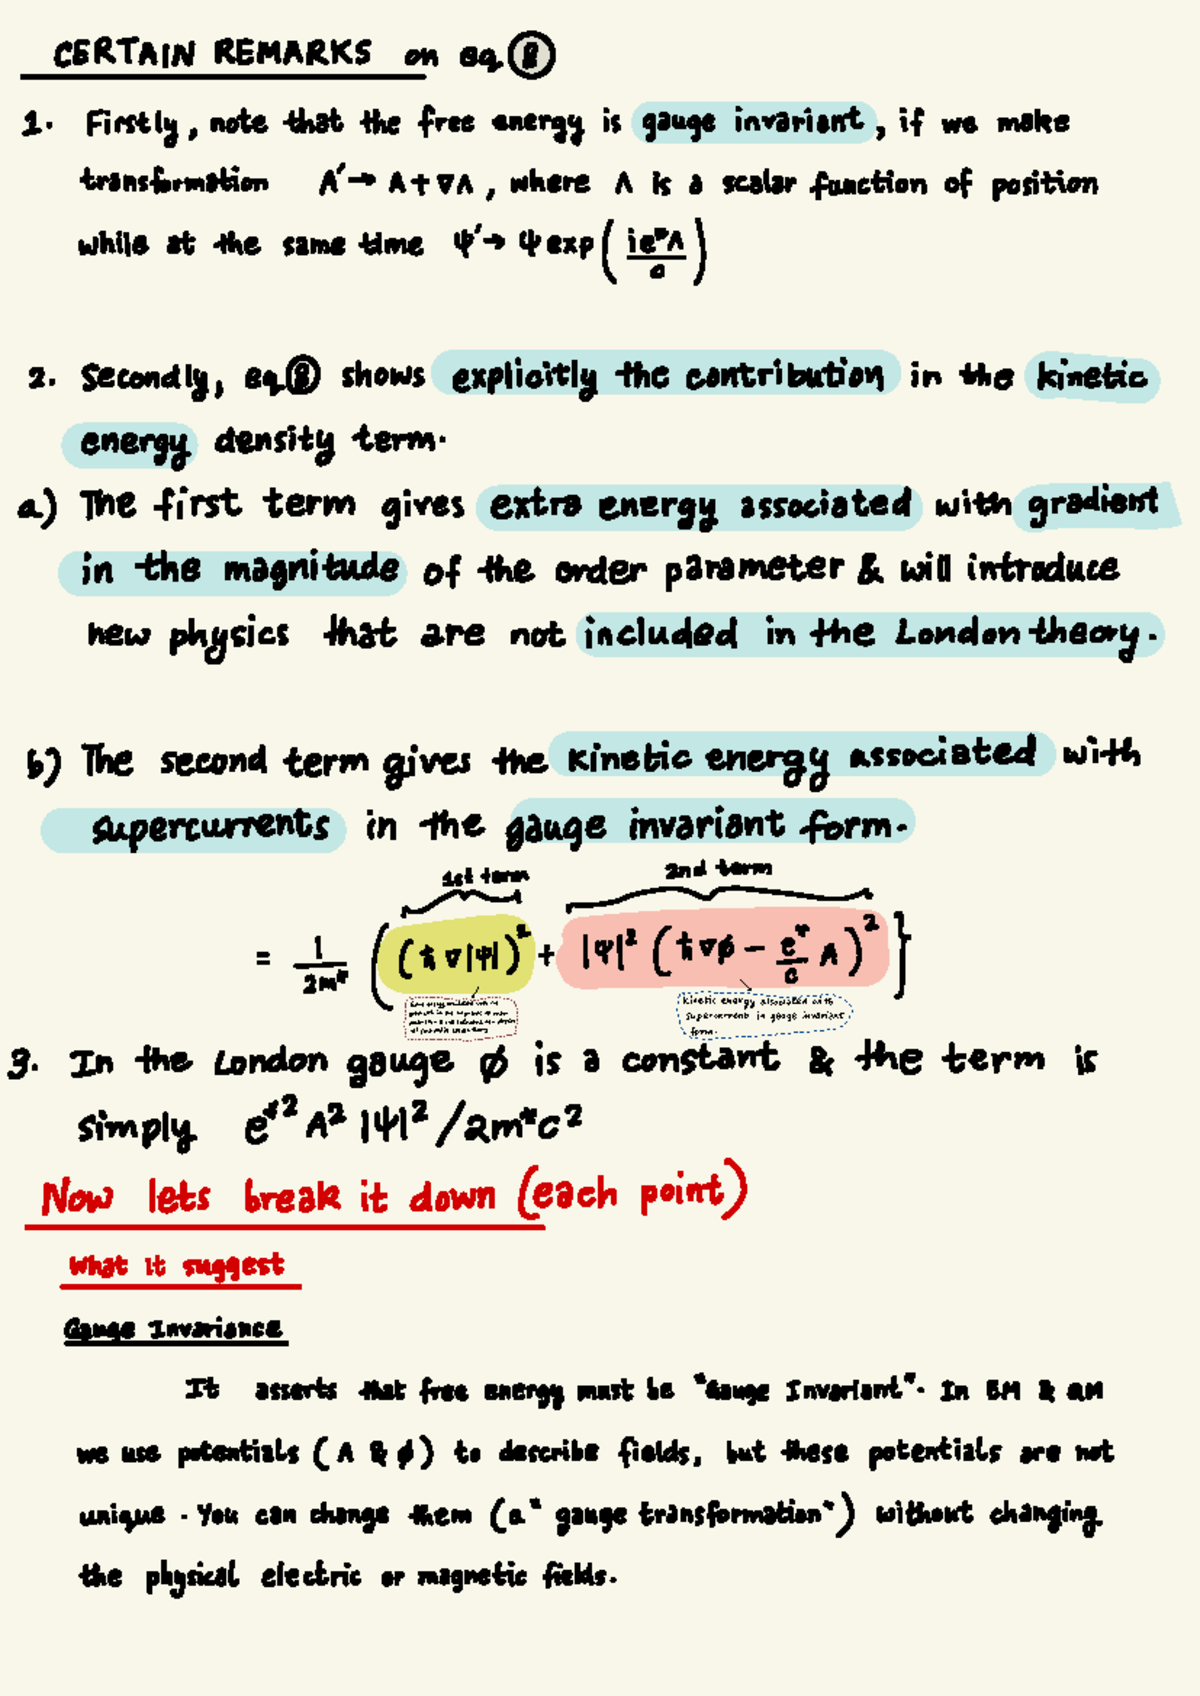 CERTAIN REMARKS on eq. ⑧
1. Firstly, note that the free energy is gauge invariant, if we make
transformation A′→ A+∇Λ, where Λ is a scalar function of position
while at the same time ψ′→ ψ exp(ie*Λ/c)
2. Secondly, eq.⑧ shows explicitly the contribution in the kinetic
energy density term.
a) The first term gives extra energy associated with gradient
in the magnitude of the order parameter & will introduce
new physics that are not included in the London theory.
b) The second term gives the kinetic energy associated with
supercurrents in the gauge invariant form.
1st term 2nd term
= 1/2m* ( (ħ∇|ψ|)² + |ψ|² (ħ∇φ − e*/c A)² }
Kinetic energy associated with
supercurrents in gauge invariant
form.
3. In the London gauge φ is a constant & the term is
simply e*² A² |ψ|² /2m*c²
Now lets break it down (each point)
What it suggest
Gauge Invariance
It asserts that free energy must be "Gauge Invariant". In EM & QM
we use potentials (A & φ) to describe fields, but these potentials are not
unique. You can change them (a "gauge transformation") without changing
the physical electric or magnetic fields.